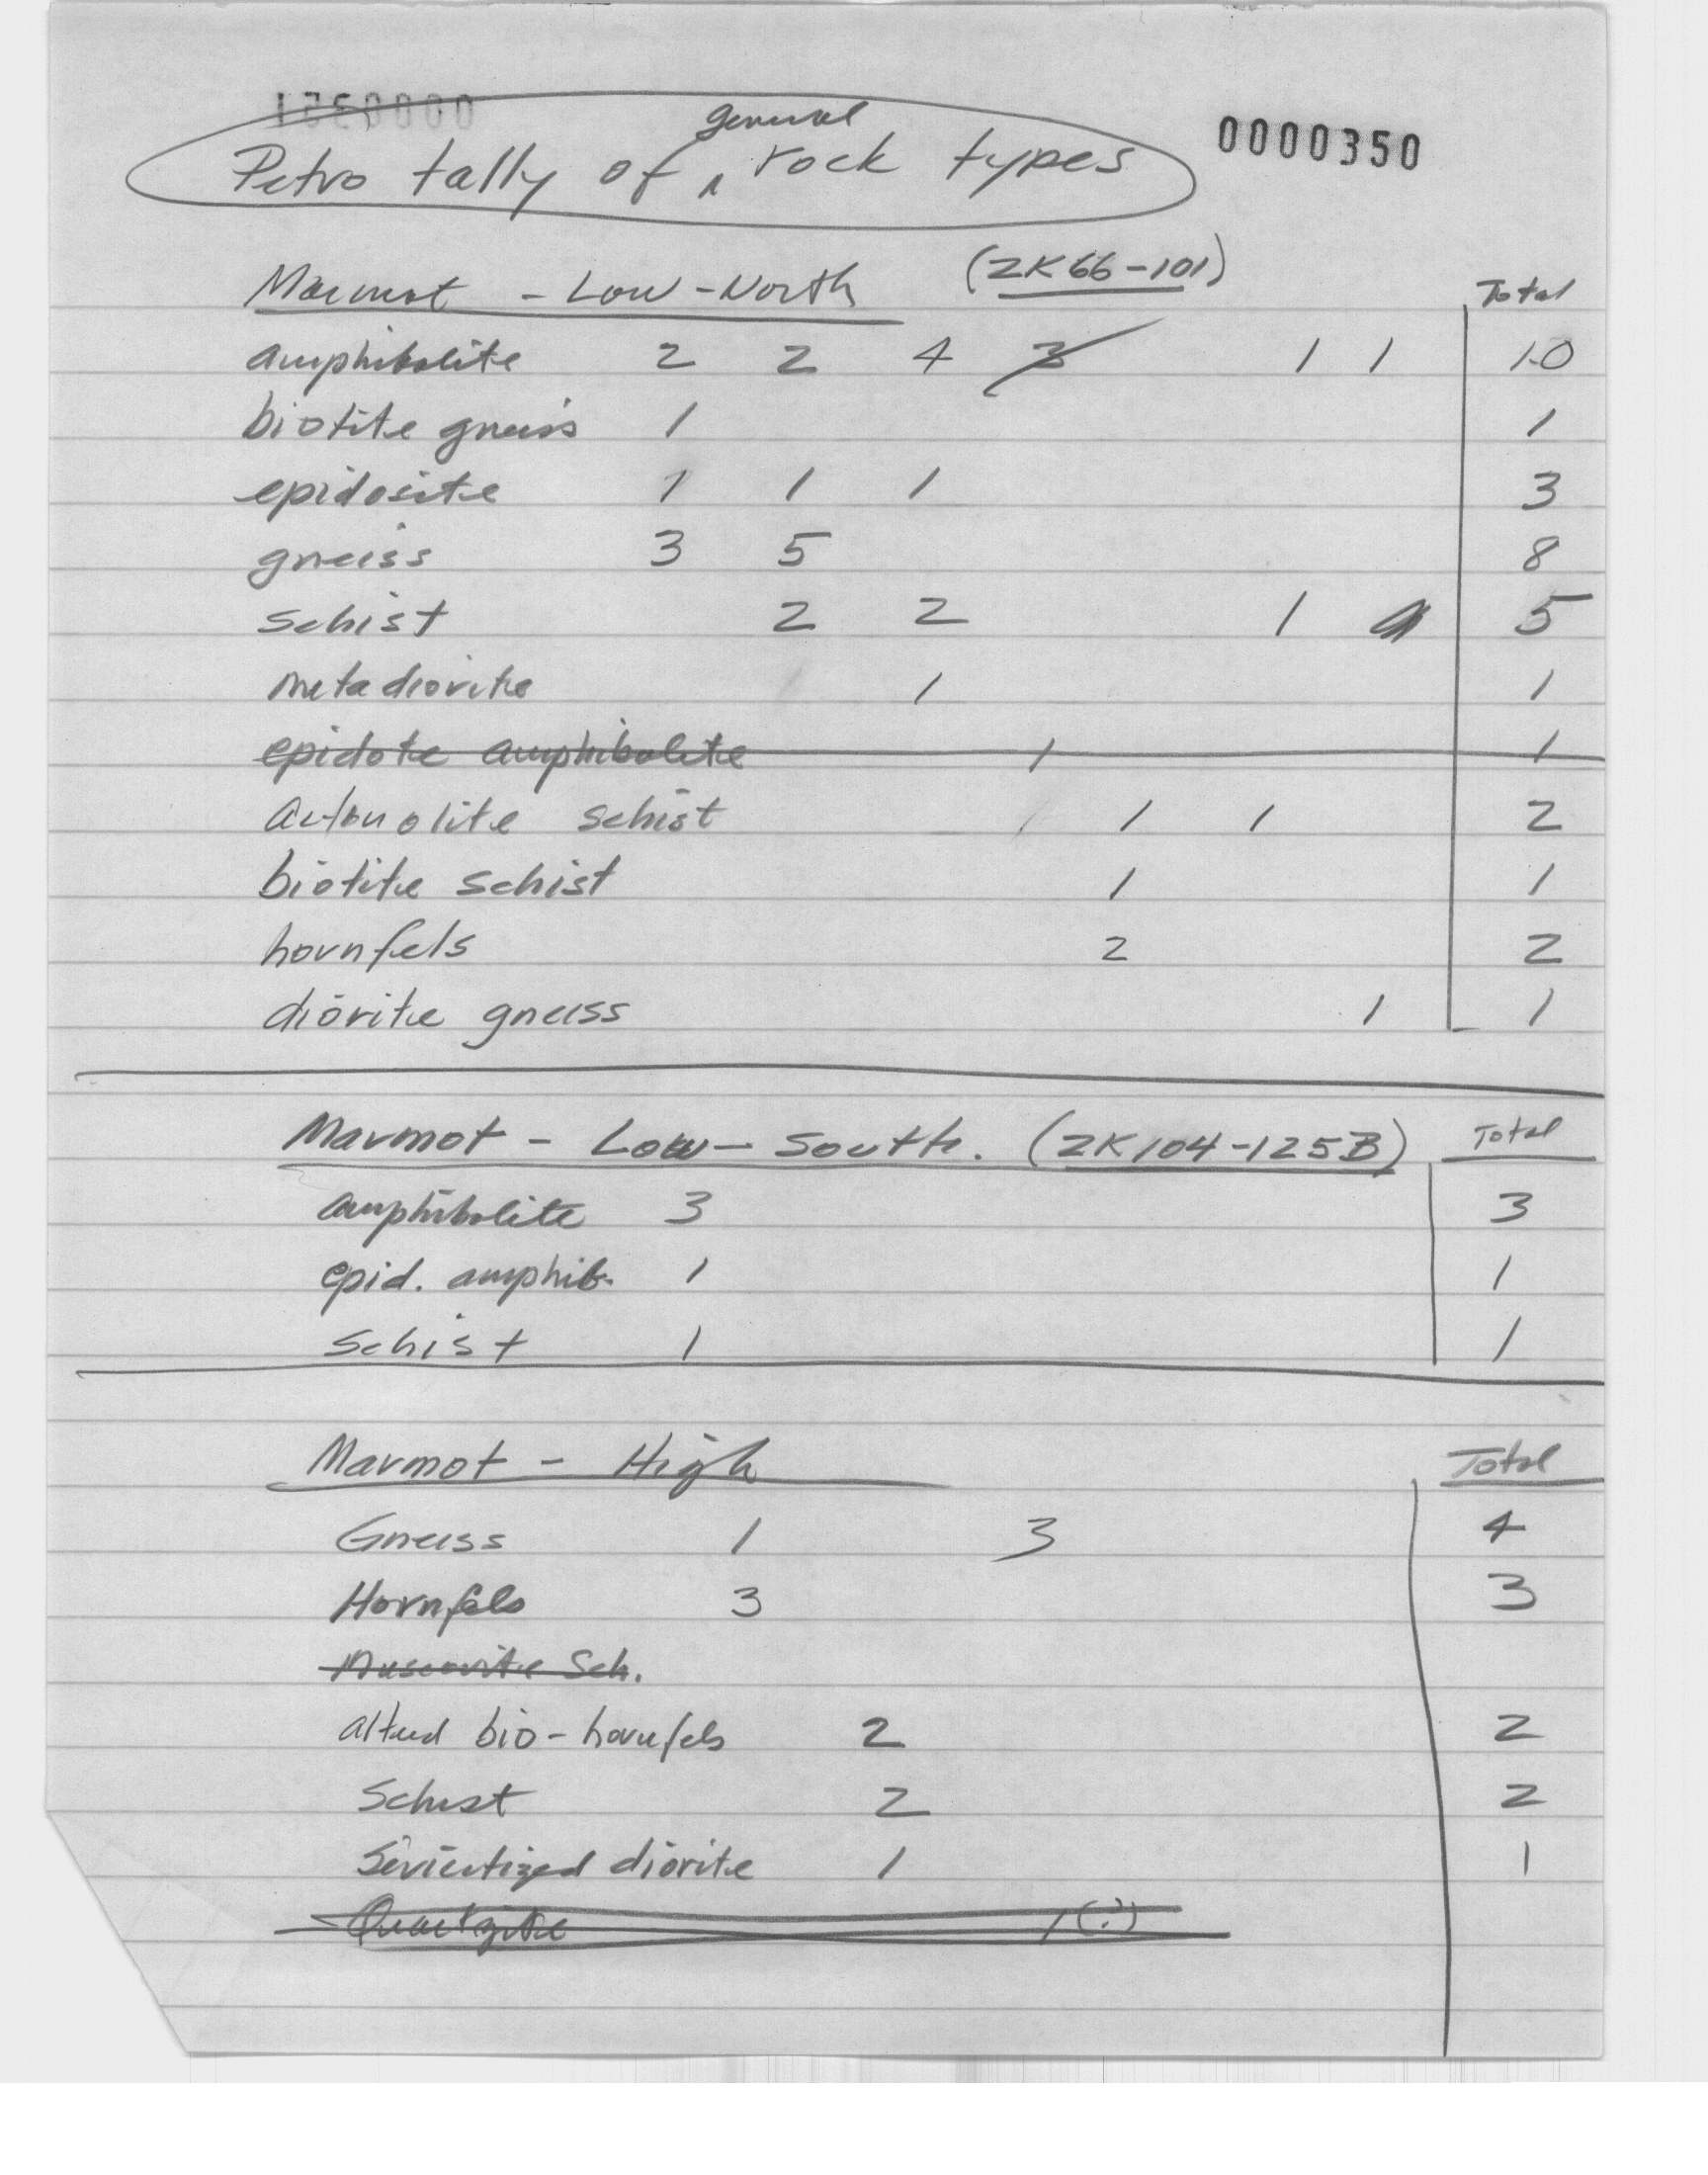 0000351
general
0000350
Petro tally of ^ rock types
Marmot - Low - North (ZK66-101) Total
amphibolite 2 2 4 3 1 1 10
biotite gneiss 1 1
epidosite 1 1 1 3
gneiss 3 5 8
schist 2 2 1 5
metadiorite 1 1
epidote amphibolite 1 1
actonolite schist 1 1 2
biotite schist 1 1
hornfels 2 2
diorite gneiss 1 1
Marmot - Low - South. (ZK104-125B) Total
amphibolite 3 3
epid. amphib. 1 1
schist 1 1
Marmot - High Total
Gneiss 1 3 4
Hornfels 3 3
Muscovite Sch.
altered bio-hornfels 2 2
Schist 2 2
Sericitized diorite 1 1
Quartzite 1(?)